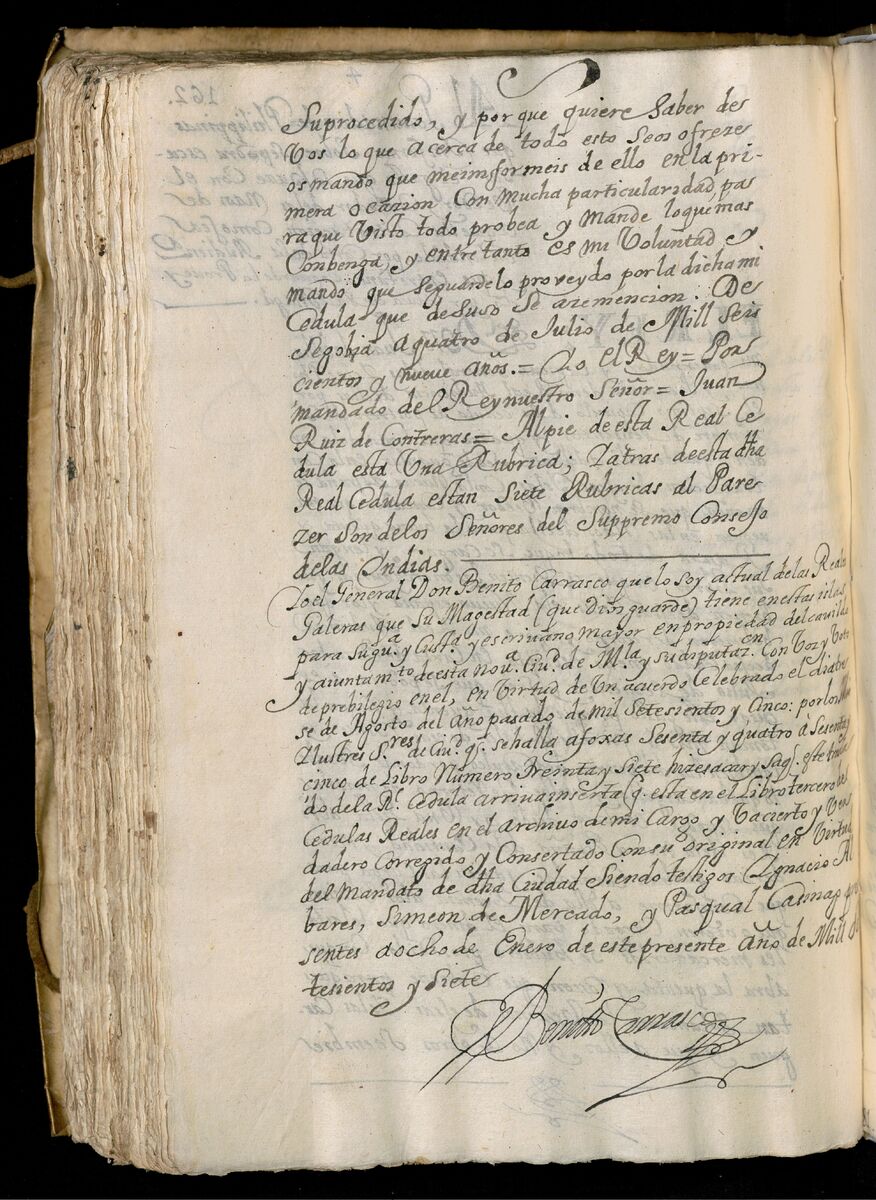 Suprocedido, y por que quiere Saber des
Vos lo que acerca de todo esto Seos ofreze
os mando que meimsformeis de ello en la pri-
mera ocazion Con mucha particularidad, pas
ra que Visto todo probea y Mande loquemas
Conbenga, y entretanto es mi Voluntad y
mando que Seguardelo proveydo por la dicha mi
Cedula que desuso Se azemencion. De
Segobia a quatro de Julio de Mill seis
cientos y nueve años.= Yo el Rey= Por
mandado del Rey nuestro Señor= Juan
Ruiz de Contreras= Al pie de esta Real Ce
dula esta Una Rubrica; Y atras de esta dha
Real Cedula estan Siete Rubricas al Pare
zer son delos Señores del Suppremo Consejo
delas Yndias.
Yo el General Don Benito Carrasco que lo soy actual de las Reales
Galeras que Su Magestad (que dios guarde) tiene en estas islas
para su gu.a y Cust.a y escrivano mayor en propiedad del cavildo
y aiuntam.to de esta nov.a Ciu.d de M.la y su disputaz.on Con Voz y Voto
de prebilegio en el, en Virtud de Un acuerdo Celebrado el dia tre
se de Agosto del año pasado de mil Setesientos y Cinco: por los
Ylustres S.res de Ciu.d q.e se halla afoxas Sesenta y quatro à Sesenta
cinco de Libro Numero Treinta y Siete hize sacar y saq.e este trasla
do de la R.l Cedula arriva inserta (q. esta en el Libro tercero de
Cedulas Reales en el archivo de mi Cargo y Va cierto y Ver
dadero Corregido y Consertado Con su original en Virtud
del Mandato de dha Ciudad Siendo testigos Ygnacio Al
bares, Simeon de Mercado, y Pasqual Casinag pre
sentes a ocho de Enero de este presente Año de Mill Se
tesientos y Siete
Benito Carrasco